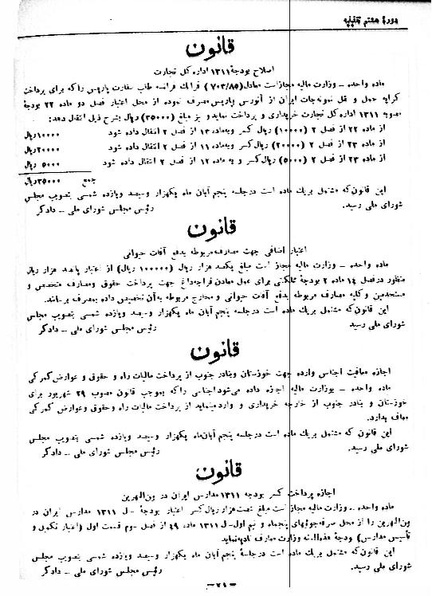 دورهٔ هشتم تقنینیه
قانون
اصلاح بودجهٔ ۱۳۱۱ اداره کل تجارت
ماده واحده - وزارت مالیه مجاز است معادل (۷۰۳/۸۵) فرانک فرانسه طلب سفارت پاریس را که برای پرداخت
کرایه حمل و نقل نمونجات ایران از آنورس بپاریس مصرف نموده از محل اعتبار فصل دو ماده ۲۲ بودجهٔ
مصوبه ۱۳۱۱ اداره کل تجارت خریداری و پرداخت نماید و نیز مبلغ (۳۵۰۰۰) ریال بشرح ذیل انتقال دهد:
از ماده ۲۲ از فصل ۲ (۱۰۰۰۰) ریال کسر و بماده ۱۳ از فصل ۲ انتقال داده شود ۱۰۰۰۰ ریال
از ماده ۲۳ از فصل ۲ (۲۰۰۰۰) ریال کسر و بماده ۱۱ از فصل ۲ انتقال داده شود ۲۰۰۰۰ ریال
از ماده ۲۳ از فصل ۲ (۵۰۰۰) ریال کسر و به ماده ۱۲ از فصل ۲ انتقال داده شود ۵۰۰۰ ریال
جمع ۳۵۰۰۰ ریال
این قانون که مشتمل بر یک ماده است در جلسه پنجم آبان ماه یکهزار و سیصد و یازده شمسی بتصویب مجلس
شورای ملی رسید. رئیس مجلس شورای ملی - دادگر
قانون
اعتبار اضافی جهت مصارف مربوطه بدفع آفات حیوانی
ماده واحده - وزارت مالیه مجاز است مبلغ یکصد هزار ریال (۱۰۰۰۰۰ ریال) از اعتبار پانصد هزار ریال
منظور در فصل ۱۴ ماده ۲ بودجهٔ مملکتی برای عمل معادن قراجه‌داغ جهت پرداخت حقوق و مصارف متخصص و
مستخدمین و کلیه مصارف مربوطه بدفع آفات حیوانی و مخارج مربوطه به آن تخصیص داده بمصرف برسانند.
این قانون که مشتمل بر یک ماده است در جلسه پنجم آبان ماه یکهزار و سیصد و یازده شمسی بتصویب مجلس
شورای ملی رسید. رئیس مجلس شورای ملی - دادگر
قانون
اجازه معافیت اجناس وارده جهت خوزستان و بنادر جنوب از پرداخت مالیات راه و حقوق و عوارض گمرکی
ماده واحده - بوزارت مالیه اجازه داده میشود اجناسی را که بموجب قانون مصوب ۲۹ شهریور برای
خوزستان و بنادر جنوب از خارجه خریداری و وارد مینماید از پرداخت مالیات راه و حقوق و عوارض گمرکی
معاف بدارد.
این قانون که مشتمل بر یک ماده است در جلسه پنجم آبان ماه یکهزار و سیصد و یازده شمسی بتصویب مجلس
شورای ملی رسید. رئیس مجلس شورای ملی - دادگر
قانون
اجازه پرداخت کسر بودجه ۱۳۱۱ مدارس ایران در بین‌النهرین
ماده واحده - وزارت مالیه مجاز است مبلغ شصت هزار ریال کسر اعتبار بودجهٔ ۱۳۱۱ مدارس ایران در
بین‌النهرین را از محل صرفه‌جوئیهای پنجماه و نیم اول ۱۳۱۱ ماده ۴۹ از فصل سوم قسمت اول (اعتبار تکمیل و
تأسیس مدارس) بودجهٔ وزارت معارف تأدیه نماید
این قانون که مشتمل بر یک ماده است در جلسهٔ پنجم آبان ماه یکهزار و سیصد و یازده شمسی بتصویب مجلس
شورای ملی رسید. رئیس مجلس شورای ملی - دادگر